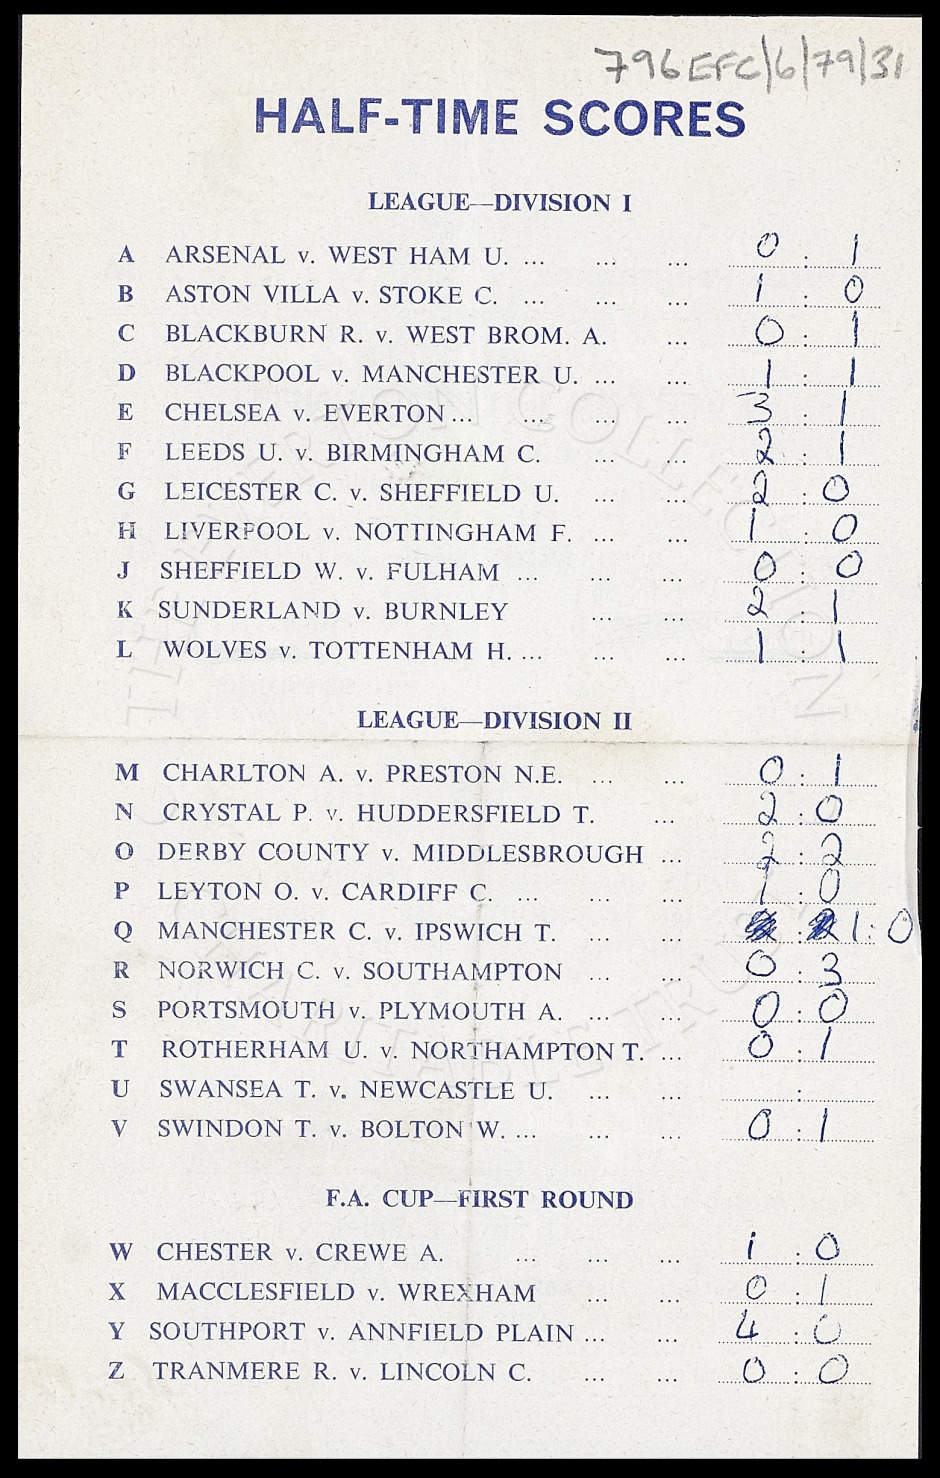 796EFC/6/79/31
HALF-TIME SCORES
LEAGUE—DIVISION I
A ARSENAL v. WEST HAM U. ... ... ... 0 : 1
B ASTON VILLA v. STOKE C. ... ... ... 1 : 0
C BLACKBURN R. v. WEST BROM. A. ... 0 : 1
D BLACKPOOL v. MANCHESTER U. ... ... 1 : 1
E CHELSEA v. EVERTON ... ... ... ... 3 : 1
F LEEDS U. v. BIRMINGHAM C. ... ... 2 : 1
G LEICESTER C. v. SHEFFIELD U. ... ... 2 : 0
H LIVERPOOL v. NOTTINGHAM F. ... ... 1 : 0
J SHEFFIELD W. v. FULHAM ... ... ... 0 : 0
K SUNDERLAND v. BURNLEY ... ... 2 : 1
L WOLVES v. TOTTENHAM H. ... ... ... 1 : 1
LEAGUE—DIVISION II
M CHARLTON A. v. PRESTON N.E. ... ... 0 : 1
N CRYSTAL P. v. HUDDERSFIELD T. ... 2 : 0
O DERBY COUNTY v. MIDDLESBROUGH ... 2 : 2
P LEYTON O. v. CARDIFF C. ... ... ... 1 : 0
Q MANCHESTER C. v. IPSWICH T. ... ... : 1 : 0
R NORWICH C. v. SOUTHAMPTON ... ... 0 : 3
S PORTSMOUTH v. PLYMOUTH A. ... ... 0 : 0
T ROTHERHAM U. v. NORTHAMPTON T. ... 0 : 1
U SWANSEA T. v. NEWCASTLE U. ... ... :
V SWINDON T. v. BOLTON W. ... ... ... 0 : 1
F.A. CUP—FIRST ROUND
W CHESTER v. CREWE A. ... ... ... 1 : 0
X MACCLESFIELD v. WREXHAM ... ... 0 : 1
Y SOUTHPORT v. ANNFIELD PLAIN ... ... 4 : 0
Z TRANMERE R. v. LINCOLN C. ... ... 0 : 0
THE EVERTON COLLECTION
CHARITABLE TRUST